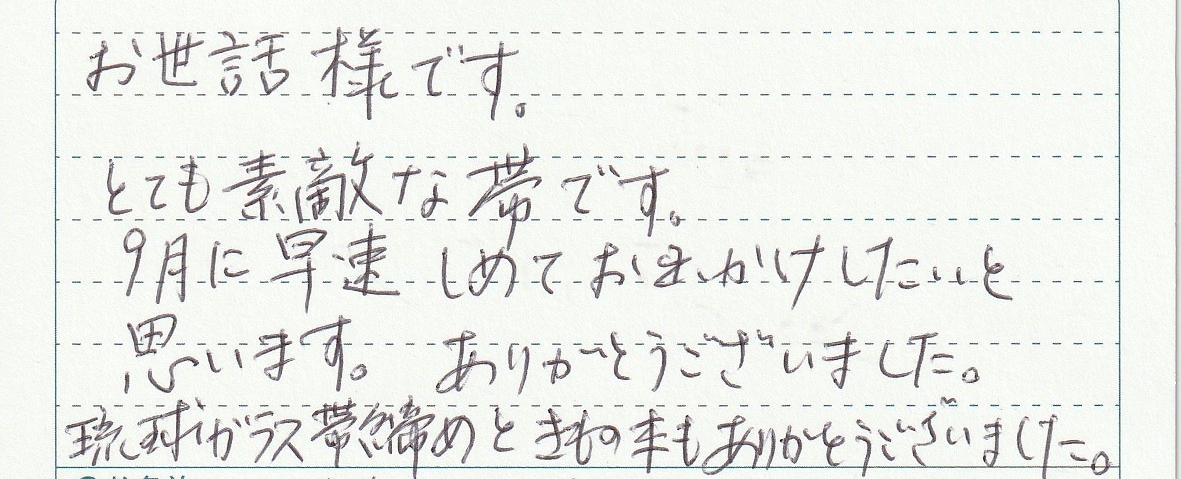 お世話様です。
とても素敵な帯です。
9月に早速しめてお出かけしたいと
思います。ありがとうございました。
琉球ガラス帯締めときもの本もありがとうございました。